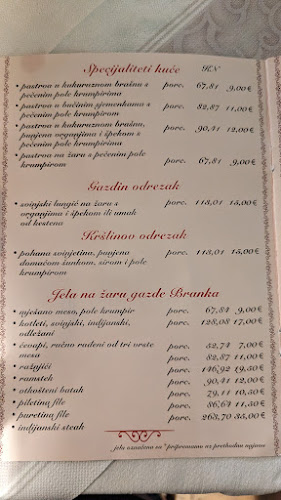 Specijaliteti kuće KN
• pastrva u kukuruznom brašnu s porc. 67,81 9,00€
pečenim pole krumpirima
• pastrva u bučinim sjemenkama s porc. 82,87 11,00€
pečenim pole krumpirom
• pastrva u kukuruznom brašnu, porc. 90,41 12,00€
punjena vrganjima i špekom s
pečenim pole krumpirima
• pastrva na žaru s pečenim pole porc. 67,81 9,00€
krumpirom
Gazdin odrezak
• svinjski lungić na žaru s porc. 113,01 15,00€
vrganjima i špekom ili umak
od kestena
Kršlinov odrezak
• pohana svinjetina, punjena porc. 113,01 15,00€
domaćom šunkom, sirom i pole
krumpirom
Jela na žaru gazde Branka
• mješano meso, pole krumpir porc. 67,84 9,00€
• kotleti, svinjski, indijanski, porc. 128,08 17,00€
odležani
• ćevapi, ručno rađeni od tri vrste porc. 52,74 7,00€
mesa porc. 82,87 11,00€
• ražnjići porc. 146,92 19,50€
• ramstek porc. 90,41 12,00€
• otkošteni batak porc. 79,11 10,50€
• piletina file porc. 86,64 11,50€
• puretina file porc. 263,70 35,00€
• indijanski steak
jela označena sa * pripremamo uz prethodnu najavu